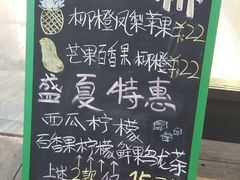 柳橙凤梨苹果杀22
芒果百香果柳橙杀22
盛夏特惠
西瓜柠檬
百香果柠檬鲜果乌龙茶
上述2款 15